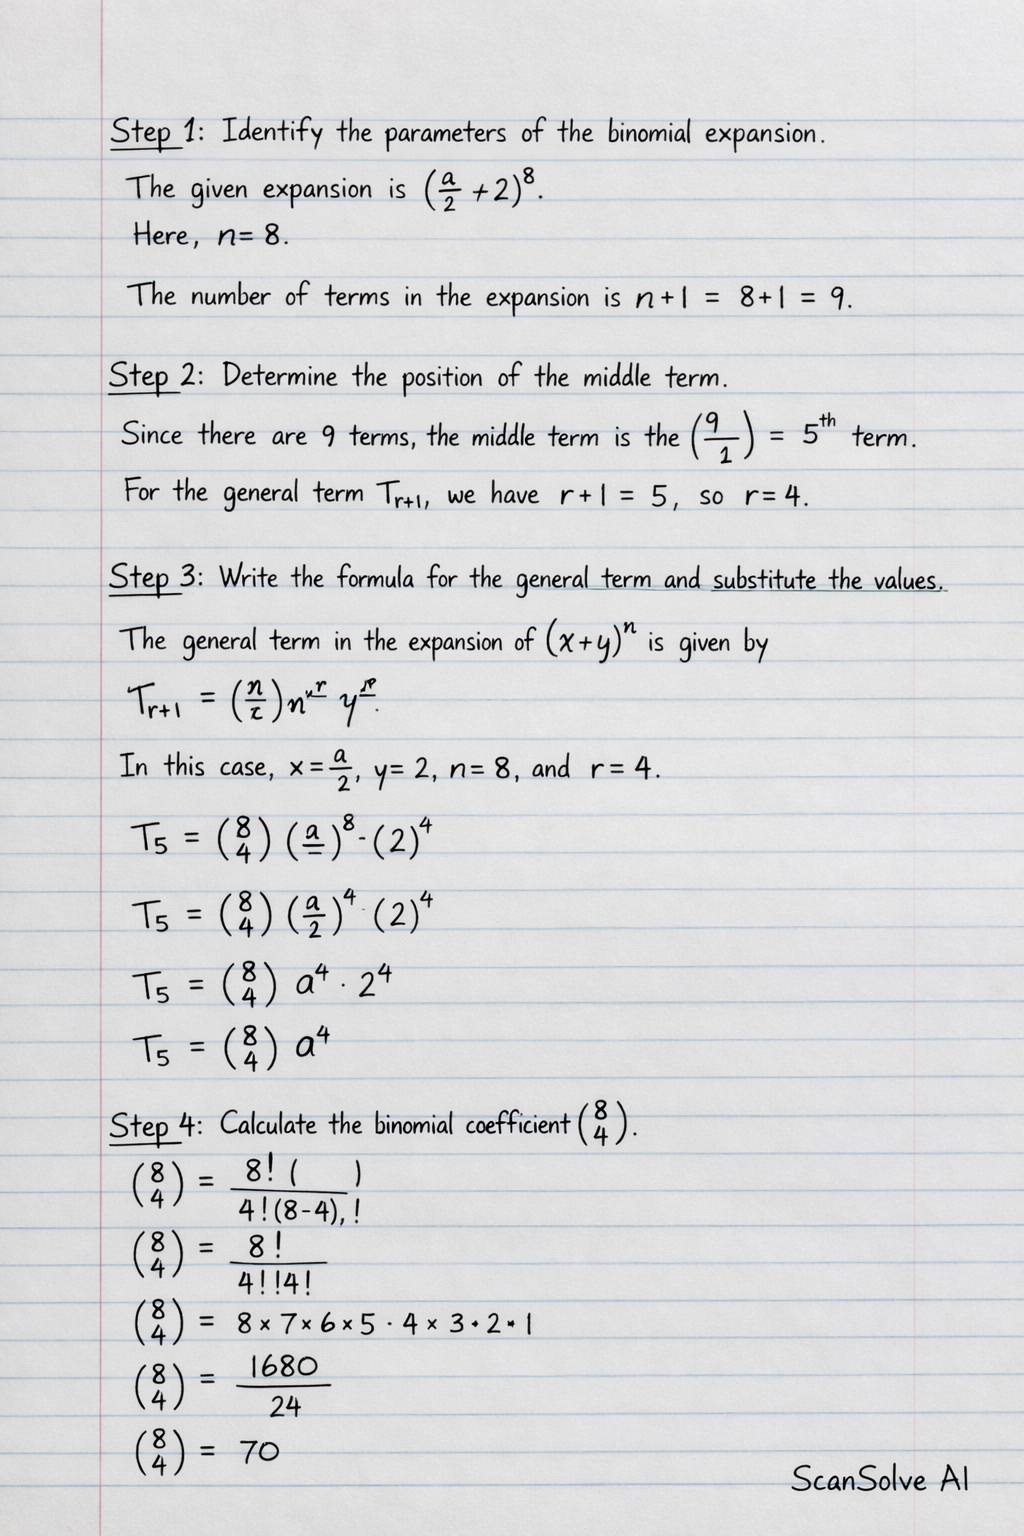 Step 1: Identify the parameters of the binomial expansion.
The given expansion is (a/2 + 2)^8.
Here, n = 8.
The number of terms in the expansion is n + 1 = 8 + 1 = 9.
Step 2: Determine the position of the middle term.
Since there are 9 terms, the middle term is the (9/1) = 5th term.
For the general term T_r+1, we have r + 1 = 5, so r = 4.
Step 3: Write the formula for the general term and substitute the values.
The general term in the expansion of (x + y)^n is given by
T_r+1 = (n/
In this case, x = a/2, y = 2, n = 8, and r = 4.
T_5 = (8 4) (a/ )^8 - (2)^4
T_5 = (8 4) (a/2)^4 · (2)^4
T_5 = (8 4) a^4 · 2^4
T_5 = (8 4) a^4
Step 4: Calculate the binomial coefficient (8 4).
(8 4) = 8! ( ) / 4!(8-4),!
(8 4) = 8! / 4!!4!
(8 4) = 8 × 7 × 6 × 5 · 4 × 3 · 2 · 1
(8 4) = 1680 / 24
(8 4) = 70
ScanSolve AI